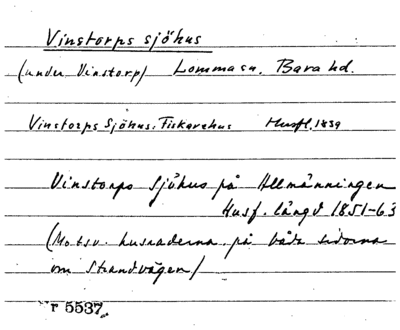 Vinstorps sjöhus
(under Vinstorp) Lomma sn. Bara hd.
Vinstorps Sjöhus: Fiskarehus Husfl. 1839
Vinstorps Sjöhus på Allmänningen
Husf. längd 1851-63
(Motsv. husraderna på båda sidorna
om Strandvägen)
r 5537